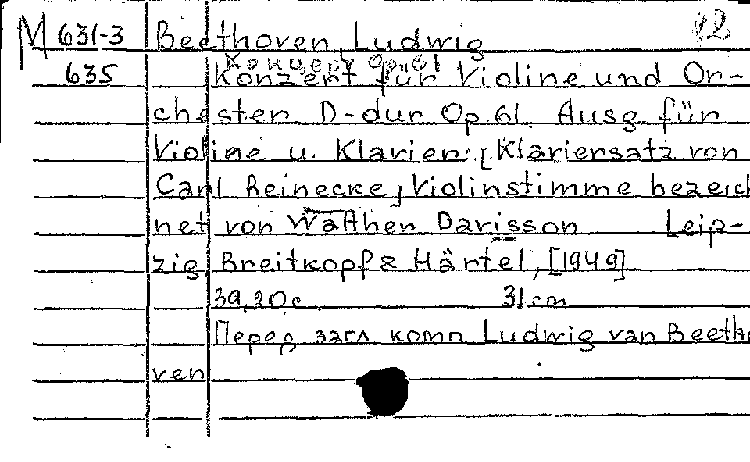 M 631-3 Beethoven, Ludwig 12
Концерт Op. 61
635 Konzert für Violine und Or-
chester D-dur Op 61. Ausg für
Violine u. Klavier. [Klaviersatz von
Carl Reinecke, Violinstimme bezeich
net von Walther Davisson Leip-
zig, Breitkopf & Härtel, [1949]
39, 20 с 31 cm
Перед загл. комп Ludwig van Beetho
ven